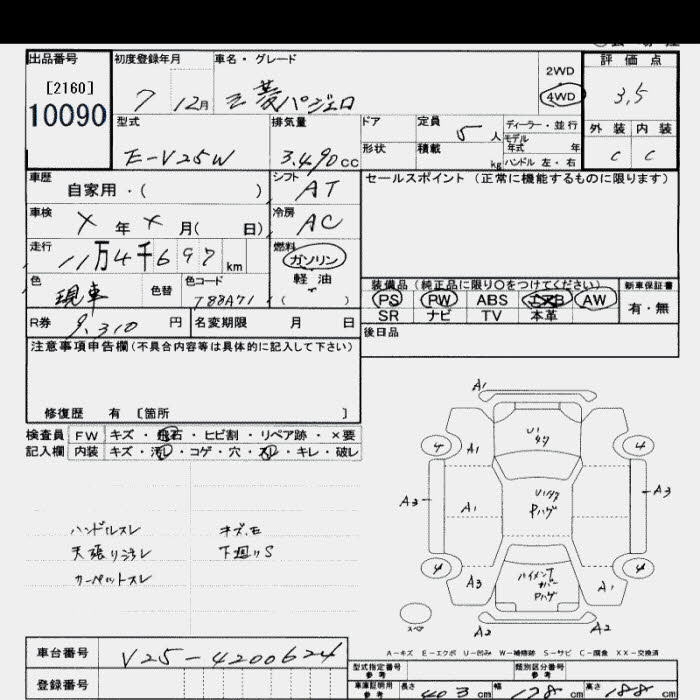 出品番号 初度登録年月 車名・グレード 2WD 評価点
[2160] 7 12月 三菱パジェロ 4WD 3.5
10090
型式 排気量 ドア 定員 5人 ディーラー・並行 外装 内装
E-V25W 3.490cc 形状 積載 kg モデル年式 年 C C
ハンドル 左・右
車歴 自家用・( ) シフト AT セールスポイント(正常に機能するものに限ります)
車検 X年X月( 日) 冷房 AC
走行 11万4千697km 燃料 ガソリン
軽油
( )
色 現車 色替 色コード T88A71
装備品(純正品に限り〇をつけてください) 新車保証書
PS PW ABS AW 有・無
SR ナビ TV 本革
R券 9,310円 名変期限 月 日 後日品
注意事項申告欄(不具合内容等は具体的に記入して下さい)
修復歴 有 [箇所 ]
検査員 FW キズ・飛石・ヒビ割・リペア跡・×要
記入欄 内装 キズ・汚レ・コゲ・穴・スレ・キレ・破レ
ハンドルスレ キズ.E
天張り汚レ 下廻りS
カーペットスレ
A1
U1
4 4
A1
A3 A3
A1 Pハゲ
4 4
A3 A1
Pハゲ
スペア
A2 A2
A-キズ E-エクボ U-凹み W-補修跡 S-サビ C-腐食 XX-交換済
車台番号 V25-4200624
登録番号
型式指定番号 参考 類別区分番号 参考
車庫証明用 参考 長さ 403cm 幅 178cm 高さ 188cm